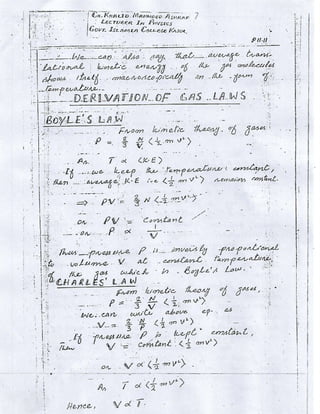 EN. KHALID MAHMOOD ASHRAF
LECTURER IN PHYSICS
GOVT. ISLAMIA COLLEGE KASUR.
We can also say that average trans-
lational kinetic energy of the gas molecules
shows itself macroscopically in the form of
temperature.
DERIVATION OF GAS LAWS
BOYLE'S LAW
From kinetic theory of gases
P = 2/3 N/V <1/2 mv²>
As T ∝ <K.E>
If we keep the temperature constant,
then average K.E i.e <1/2 mv²> remains constant
⇒ PV = 2/3 N <1/2 mv²>
or PV = Constant
or P ∝ 1/V
Thus pressure P is inversly proportional
to volume V at constant temperature
of the gas which is Boyle's Law.
CHARLES' LAW
From kinetic theory of gases,
P = 2/3 N/V <1/2 mv²>
We can write above eq. as
V = 2/3 N/P <1/2 mv²>
If pressure P is kept constant,
Then V = constant <1/2 mv²>
or V ∝ <1/2 mv²>
As T ∝ <1/2 mv²>
Hence, V ∝ T.